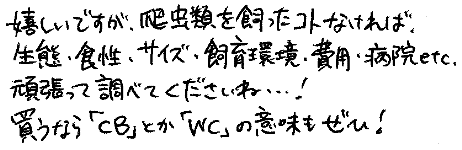 嬉しいですが、爬虫類を飼ったコトなければ、
生態・食性・サイズ・飼育環境・費用・病院etc.
頑張って調べてくださいね…!
買うなら「CB」とか「WC」の意味もぜひ!